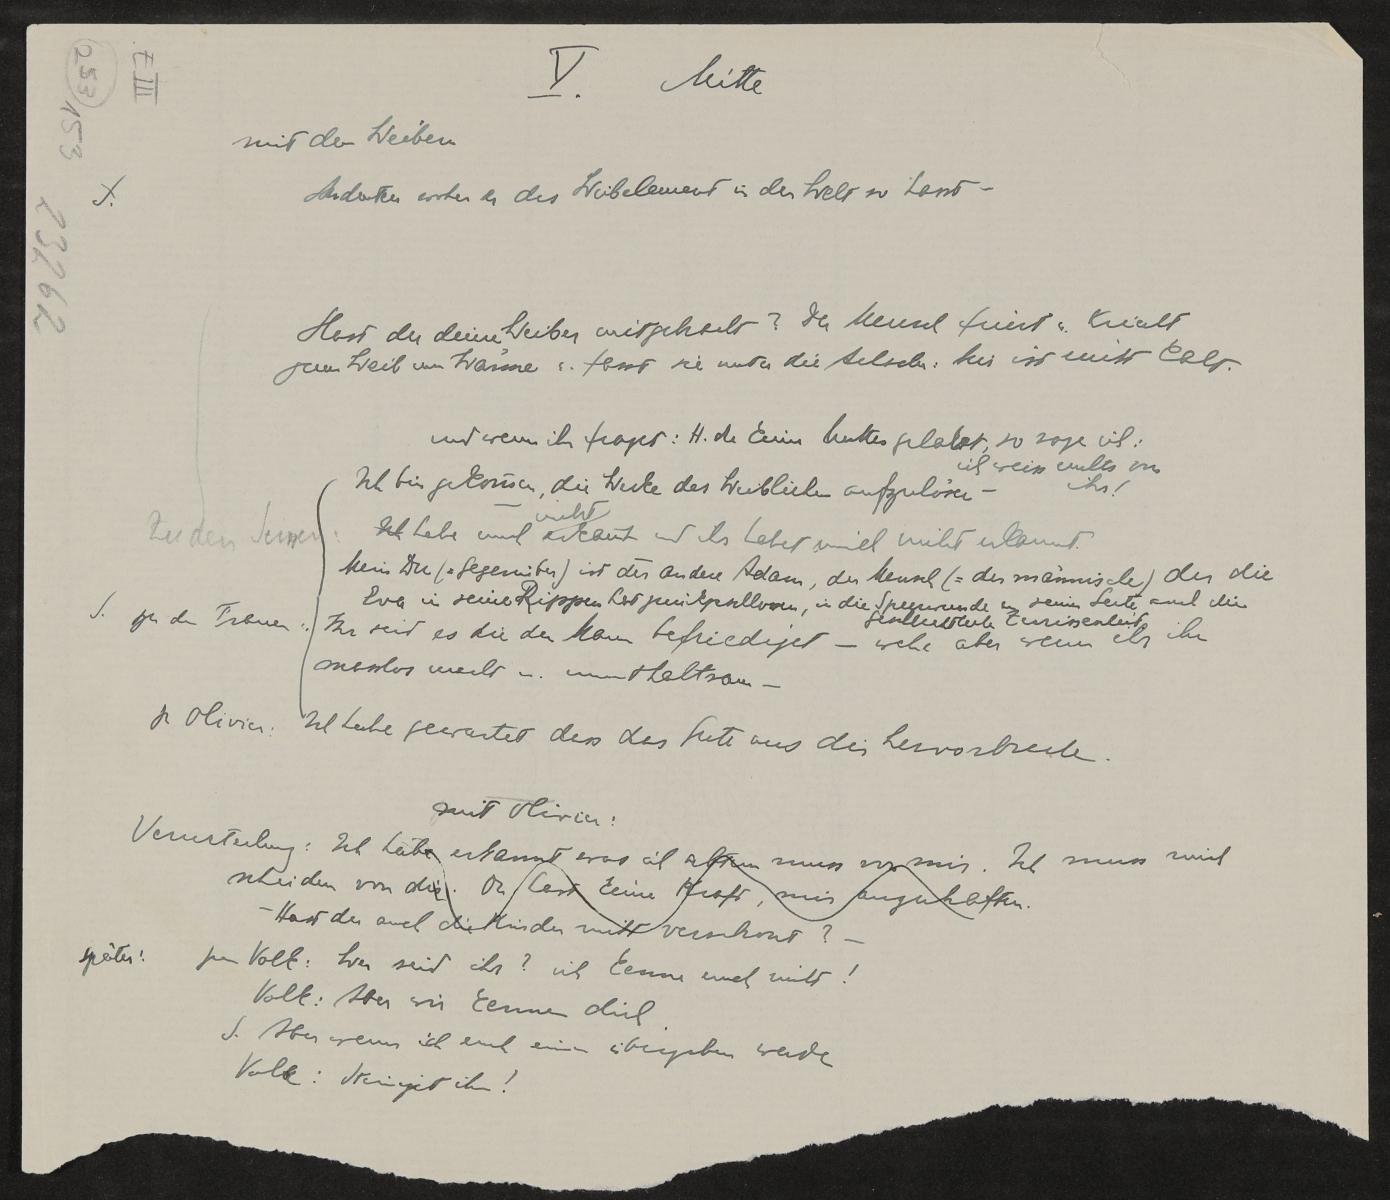 E III
253
153
23262
V. Mitte
mit den Weibern
J. Andenken woher er das Weibelement in der Welt so hasst –
Hast du deine Weiber mitgebracht? Der Mensch friert u. kriecht
zum Weib um Wärme u. fasst sie unter die Achseln: hier ist nicht kalt.
und wenn ihr fraget: H. du keine Mutter gehabt, so sage ich:
ich weiss nichts von
ihr!
Ich bin gekommen, die Werke des Weiblichen aufzulösen –
Zu den Jungen: Ich habe euch nicht erkannt und ihr habet mich nicht erkannt.
Mein Du (= Gegenüber) ist der andere Adam, der Mensch (= der männische) der die
Eva in seine Rippen hat, in die Speerwunde in seine Seite auch die
geschlechtliche Zerrissenheit
J. zu den Frauen: Ihr seid es die den Mann befriediget – wehe aber wenn ihr ihn
masslos macht u. unenthaltsam –
zu Olivier: Ich habe gewartet dass das Gute aus dir hervorbreche.
mit Olivier:
Verurteilung: Ich habe erkannt was ich muss von mir. Ich muss mich
scheiden von dir. Du hast keine Kraft, mir anzuhaften.
– Hast du auch die Kinder nicht verschont? –
später: zum Volk: Wer seid ihr? ich kenne euch nicht!
Volk: Aber wir kennen dich.
J. Aber wenn ich euch einen übergeben werde
Volk: Steiniget ihn!